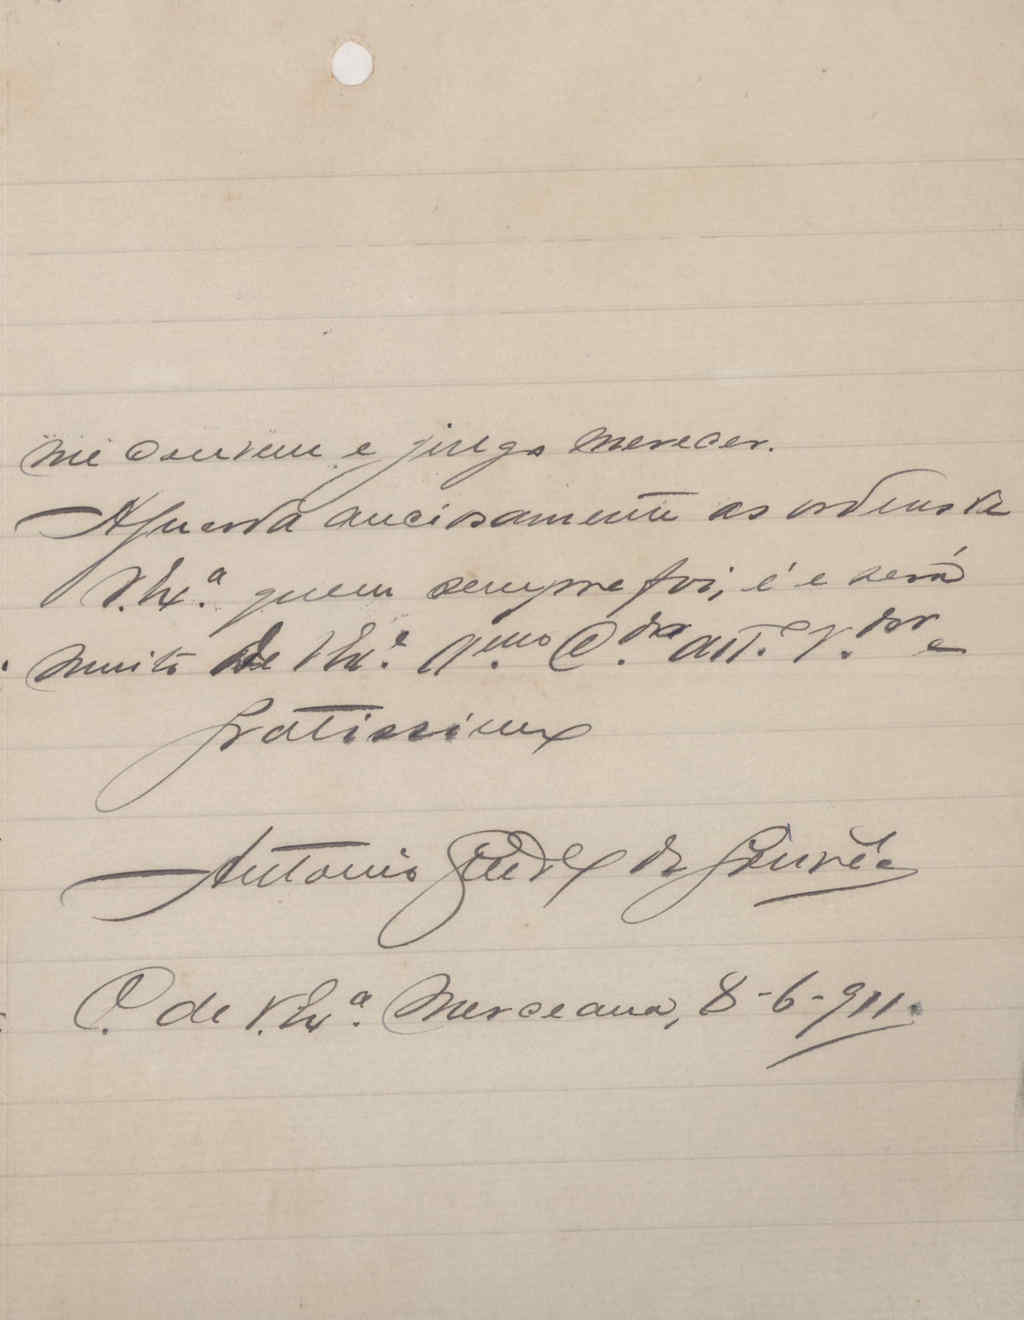 me convem e julgo merecer.
Aguarda anciosamente as ordens de
V. Ex.ª quem sempre foi, é e será
muito de V. Ex.ª
Gratissimo
Antonio Guedes de Gouvêa
C. de V. Ex.ª Merceana, 8-6-911.